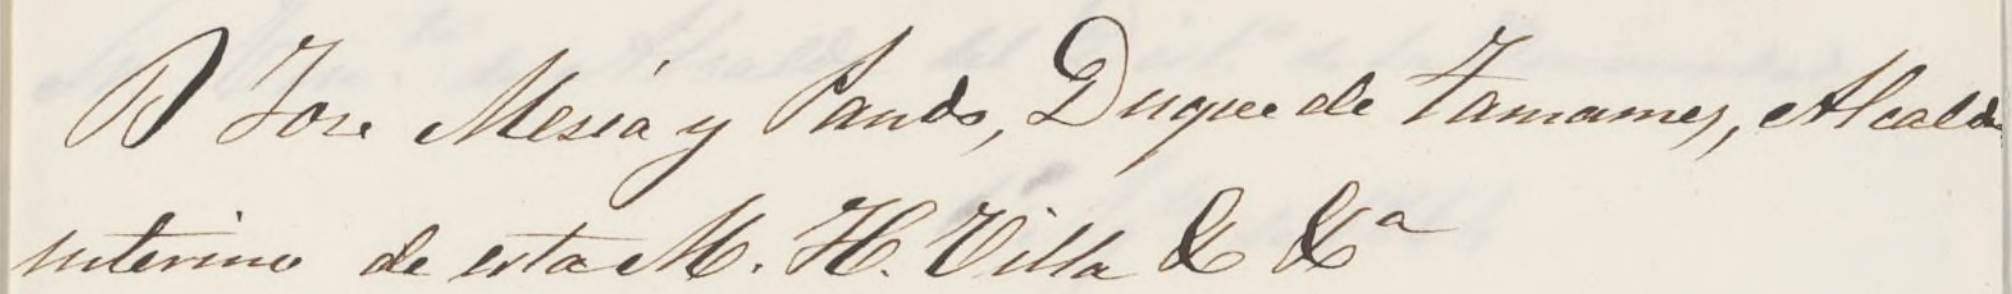 D José Mesía y Pando, Duque de Tamames, Alcalde
interino de esta M. H. Villa & &ª